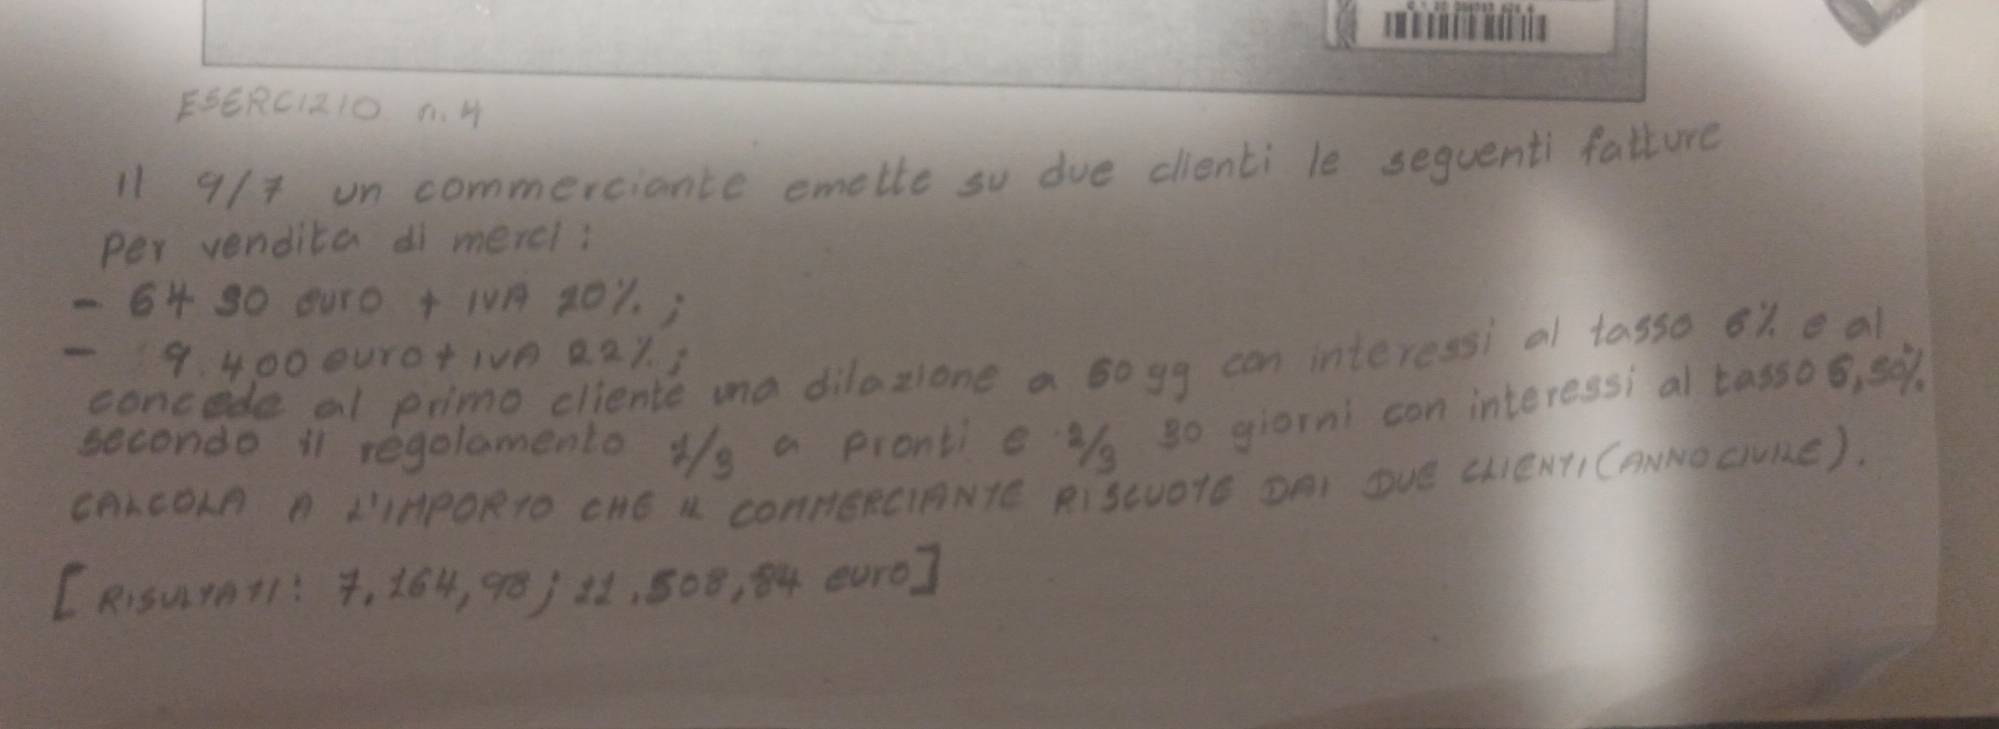 ESERCIZIO n. 4
Il 9/7 un commerciante emette su due clienti le seguenti fatture
Per vendita di merci:
- 6430 euro + IVA 10%;
- 9.400 euro + IVA 22%;
concede al primo cliente una dilazione a 60 gg con interessi al tasso 6% e al
secondo il regolamento 1/3 a pronti e 2/3 30 giorni con interessi al tasso 6,50%.
CALCOLA A L'IMPORTO CHE IL COMMERCIANTE RISCUOTE DAI DUE CLIENTI (ANNO CIVILE).
[RISULTATI: 7.164,98; 11.508,84 euro]